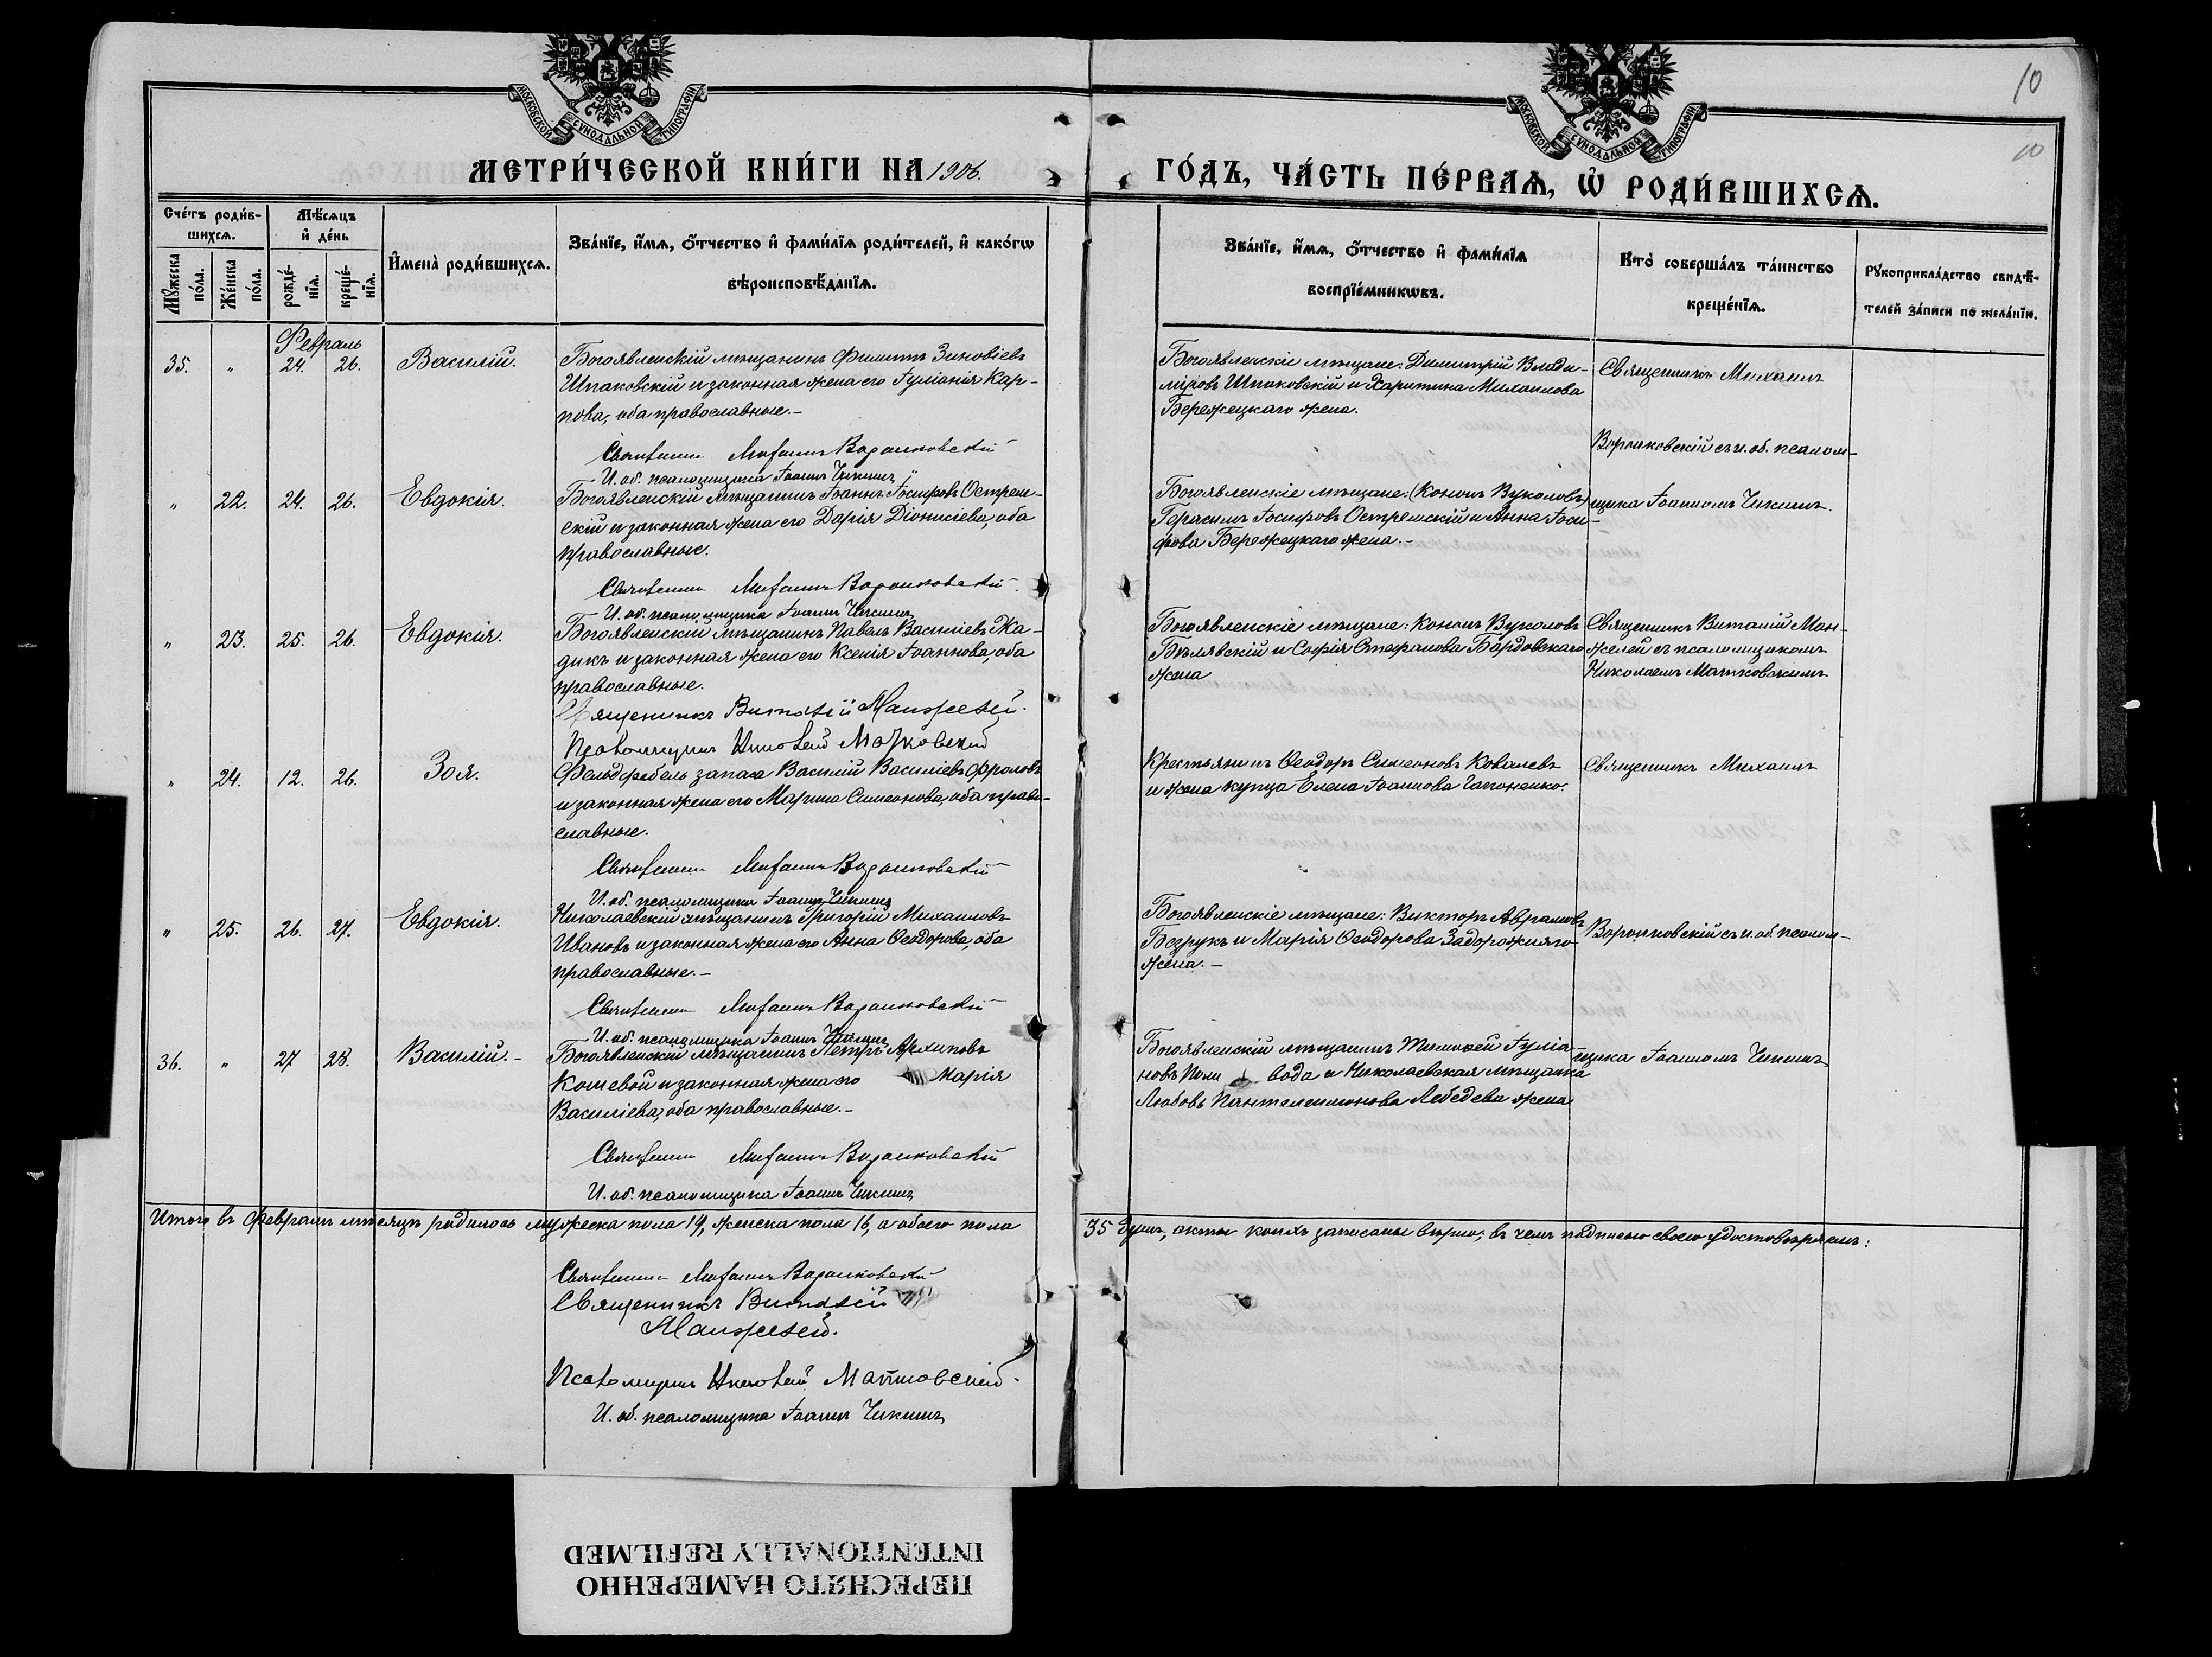 10
10
МОСКОВСКОЙ СѴНОДАЛЬНОЙ ТИПОГРАФІИ
МОСКОВСКОЙ СѴНОДАЛЬНОЙ ТИПОГРАФІИ
МЕТРИ́ЧЕСКОЙ КНИ́ГИ НА 1906.
ГО́ДЪ, ЧА́СТЬ ПЕ́РВАѦ, Ѡ҆ РОДИ́ВШИХСѦ.
Сче́тъ роди́в-
шихсѧ.
Мѣ́сѧцъ
и҆ де́нь
Мꙋ́жеска по́ла.
Же́нска по́ла.
рожде́-
нїѧ.
креще́-
нїѧ.
И҆мена̀ роди́вшихсѧ.
Зва́нїе, и҆́мѧ, ѻ҆́тчество и҆ фами́лїѧ роди́телей, и҆ како́гѡ
вѣроисповѣ́данїѧ.
Зва́нїе, и҆́мѧ, ѻ҆́тчество и҆ фами́лїѧ
воспрїе́мникѡвъ.
Кто̀ соверша́лъ та́инство
креще́нїѧ.
Рꙋкоприкла́дство свидѣ́-
телей за́писи по жела́нїю.
Февраль
35. " 24. 26. Василій.
Богоявленскій мѣщанинъ Филиппъ Зиновіевъ
Шпаковскій и законная жена его Іуліанія Кар-
пова, оба православные.-
Священникъ Михаилъ Воронковскій
И. об. псаломщика Іоаннъ Чикинъ
Богоявленскіе мѣщане: Димитрій Влади-
міровъ Шпаковскій и Харитина Михаилова
Бережецкаго жена.
Священникъ Михаилъ
Воронковскій съ и. об. псалом-
" 22. 24. 26. Евдокія.
Богоявленскій мѣщанинъ Іоаннъ Іосифовъ Острем-
скій и законная жена его Дарія Діонисіева, оба
православные.
Священникъ Михаилъ Воронковскій
И. об. псаломщика Іоаннъ Чикинъ
Богоявленскіе мѣщане: (Кононъ Вуколовъ)
Герасимъ Іосифовъ Остремскій и Анна Іоси-
фова Бережецкаго жена.-
щика Іоанномъ Чикинъ.
" 23. 25. 26. Евдокія.
Богоявленскій мѣщанинъ Павелъ Василіевъ Жа-
дикъ и законная жена его Ксенія Іоаннова, оба
православные.
Священникъ Виталій Манжелей.
Псаломщикъ Николай Матковскій
Богоявленскіе мѣщане: Кононъ Вуколовъ
Бѣлявскій и Софія Стефанова Бардовскаго
жена
Священникъ Виталій Ман-
желей съ псаломщикомъ
Николаемъ Матковскимъ
" 24. 12. 26. Зоя.
Фельдфебель запаса Василій Василіевъ Фроловъ
и законная жена его Марина Симеонова, оба право-
славные.
Священникъ Михаилъ Воронковскій
И. об. псаломщика Іоаннъ Чикинъ
Крестьянинъ Ѳеодоръ Симеоновъ Ковалевъ
и жена купца Елена Іоаннова Гапоненко.
Священникъ Михаилъ
" 25. 26. 27. Евдокія.
Николаевскій мѣщанинъ Григорій Михаиловъ
Ивановъ и законная жена его Анна Ѳеодорова, оба
православные.-
Священникъ Михаилъ Воронковскій
И. об. псаломщика Іоаннъ Чикинъ
Богоявленскіе мѣщане: Викторъ Аврамовъ
Безрукъ и Марія Ѳеодорова Задорожняго
жена.-
Воронковскій съ и. об. псалом-
36. " 27 28. Василій.-
Богоявленскій мѣщанинъ Петръ Архиповъ
Кошевой и законная жена его Марія
Василіева, оба православные.-
Священникъ Михаилъ Воронковскій
И. об. псаломщика Іоаннъ Чикинъ
Богоявленскій мѣщанинъ Тимоѳей Іуліа-
новъ вода и Николаевская мѣщанка
Любовь Пантелеимонова Лебедева жена
щика Іоанномъ Чикинъ
Итого въ Февралѣ мѣсяцѣ родилось мужеска пола 19, женска пола 16, а обоего пола
35 душъ, акты коихъ записаны вѣрно; въ чемъ подписью своею удостовѣряемъ:
Священникъ Михаилъ Воронковскій
Священникъ Виталій
Манжелей.
Псаломщикъ Николай Матковскій.
И. об. псаломщика Іоаннъ Чикинъ
ПЕРЕСНЯТО НАМЕРЕННО
INTENTIONALLY REFILMED